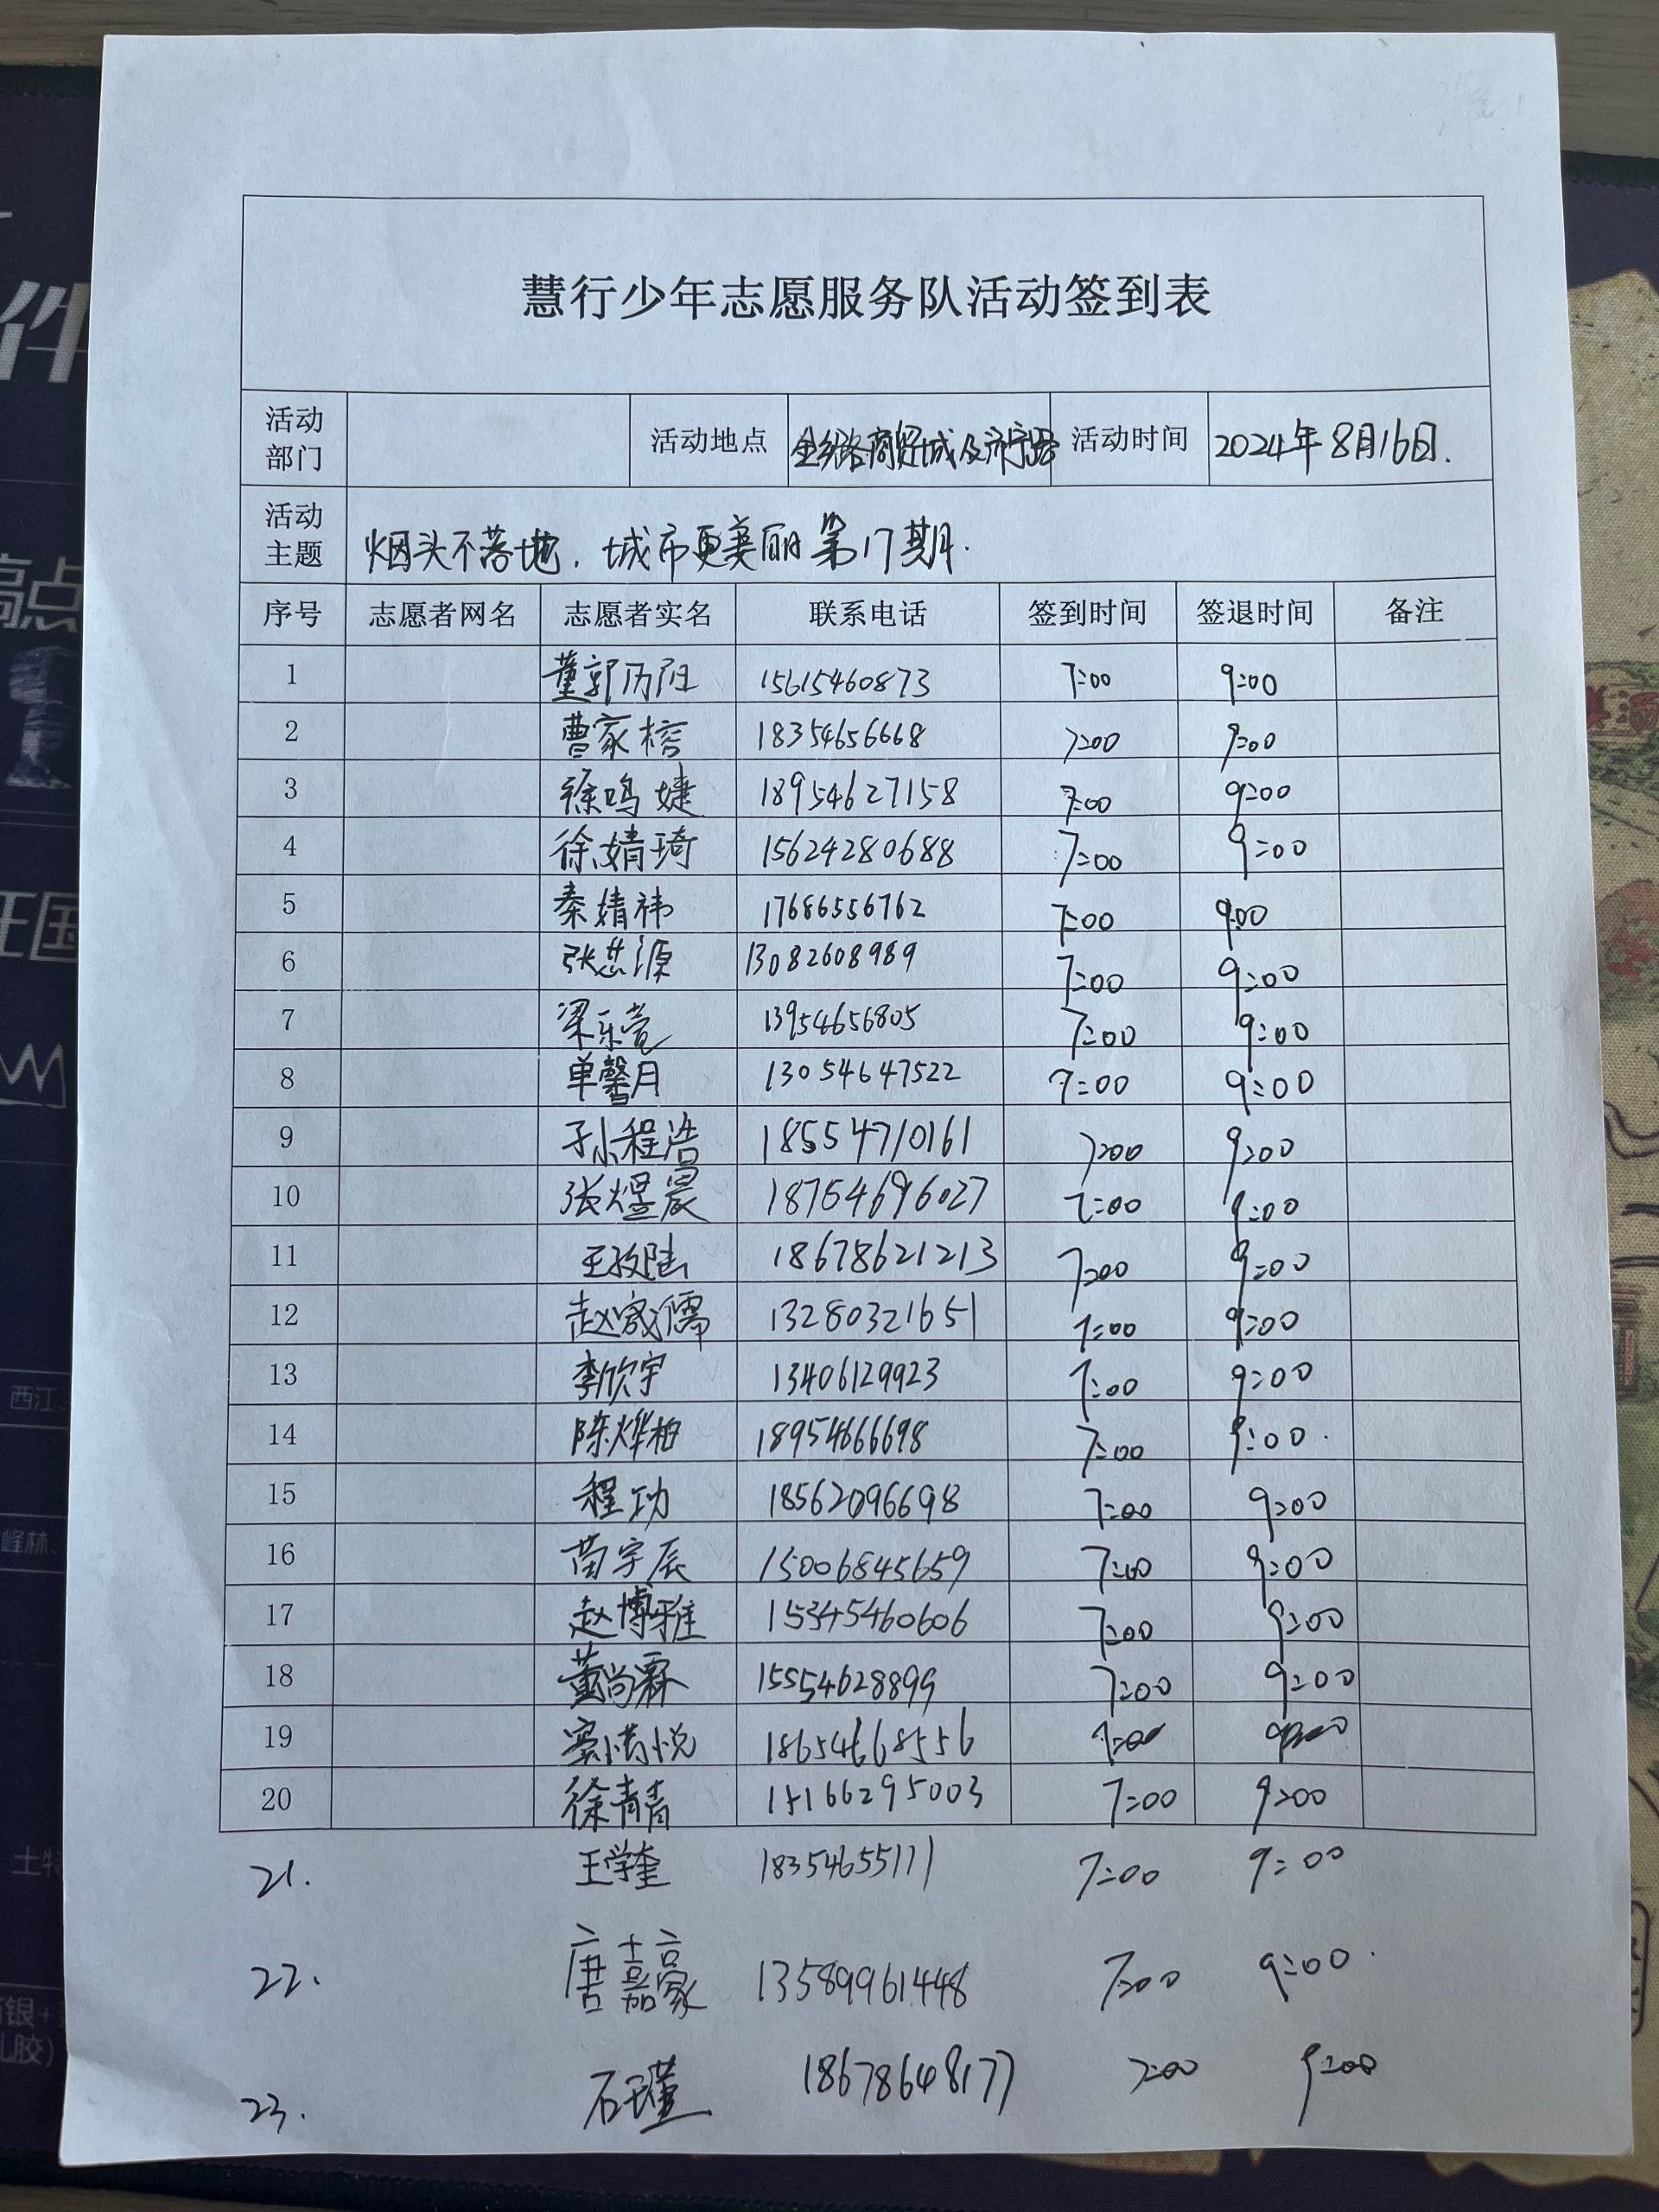 慧行少年志愿服务队活动签到表
活动部门 活动地点 金乡路商贸城及济宁路 活动时间 2024年8月16日.
活动主题 烟头不落地，城市更美丽第17期.
序号 志愿者网名 志愿者实名 联系电话 签到时间 签退时间 备注
1 董郭历阳 15615460873 7:00 9:00
2 曹家榕 18354656668 7:00 9:00
3 徐鸣婕 18954627158 7:00 9:00
4 徐婧琦 15624280688 7:00 9:00
5 秦婧祎 17686556762 7:00 9:00
6 张慈源 13082608989 7:00 9:00
7 梁乐萱 13954656805 7:00 9:00
8 单馨月 13054647522 7:00 9:00
9 孙程浩 18554710161 7:00 9:00
10 张煜晨 18764696027 7:00 9:00
11 王孜陆 18678621213 7:00 9:00
12 赵宬儒 13280321651 7:00 9:00
13 李欣宇 13406129923 7:00 9:00
14 陈烨柏 18954666698 7:00 9:00
15 程功 18562096698 7:00 9:00
16 苗宇辰 15006845659 7:00 9:00
17 赵博雅 15345460606 7:00 9:00
18 董尚霖 15554628899 7:00 9:00
19 窦情悦 18654668556 7:00 9:00
20 徐青青 15166295003 7:00 9:00
21. 王学奎 18354655111 7:00 9:00
22. 唐嘉豪 13589961448 7:00 9:00
23. 石瑾 18678648177 7:00 9:00
件
高点
王国
西江、
峰林、
土特
银+
胶)